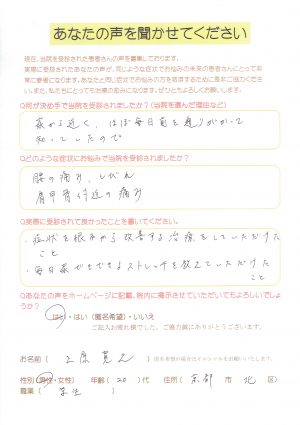 あなたの声を聞かせてください
現在、当院を受診された患者さんの声を募集しております。
実際に受診されたあなたの声が、同じような症状でお悩みの未来の患者さんにとって非常に参考になります。あなたと同じ症状でお悩みの方を救済するために是非ご協力ください。また、私たちにとっても治療の励みになります。ぜひともよろしくお願いします。
Q何が決め手で当院を受診されましたか?(当院を選んだ理由など)
家から近く、ほぼ毎日前を通りがかって
知っていたので
Qどのような症状にお悩みで当院を受診されましたか?
腰の痛み、しびれ
肩甲骨付近の痛み
Q実際に受診されて良かったことを書いてください。
・症状を根本から改善する治療をしていただけた
こと
・毎日家でもできるストレッチを教えていただけた
こと
Qあなたの声をホームページに記載、院内に掲示させていただいてもよろしいでしょうか?
はい・はい(匿名希望)・いいえ
ご記入お疲れ様でした。ご協力誠にありがとうございます。
お名前( 原 )匿名希望の場合はイニシャルをお願いいたします。
性別(男性・女性) 年齢(20)代 住所(京都 市 北 区)
職業(学生)